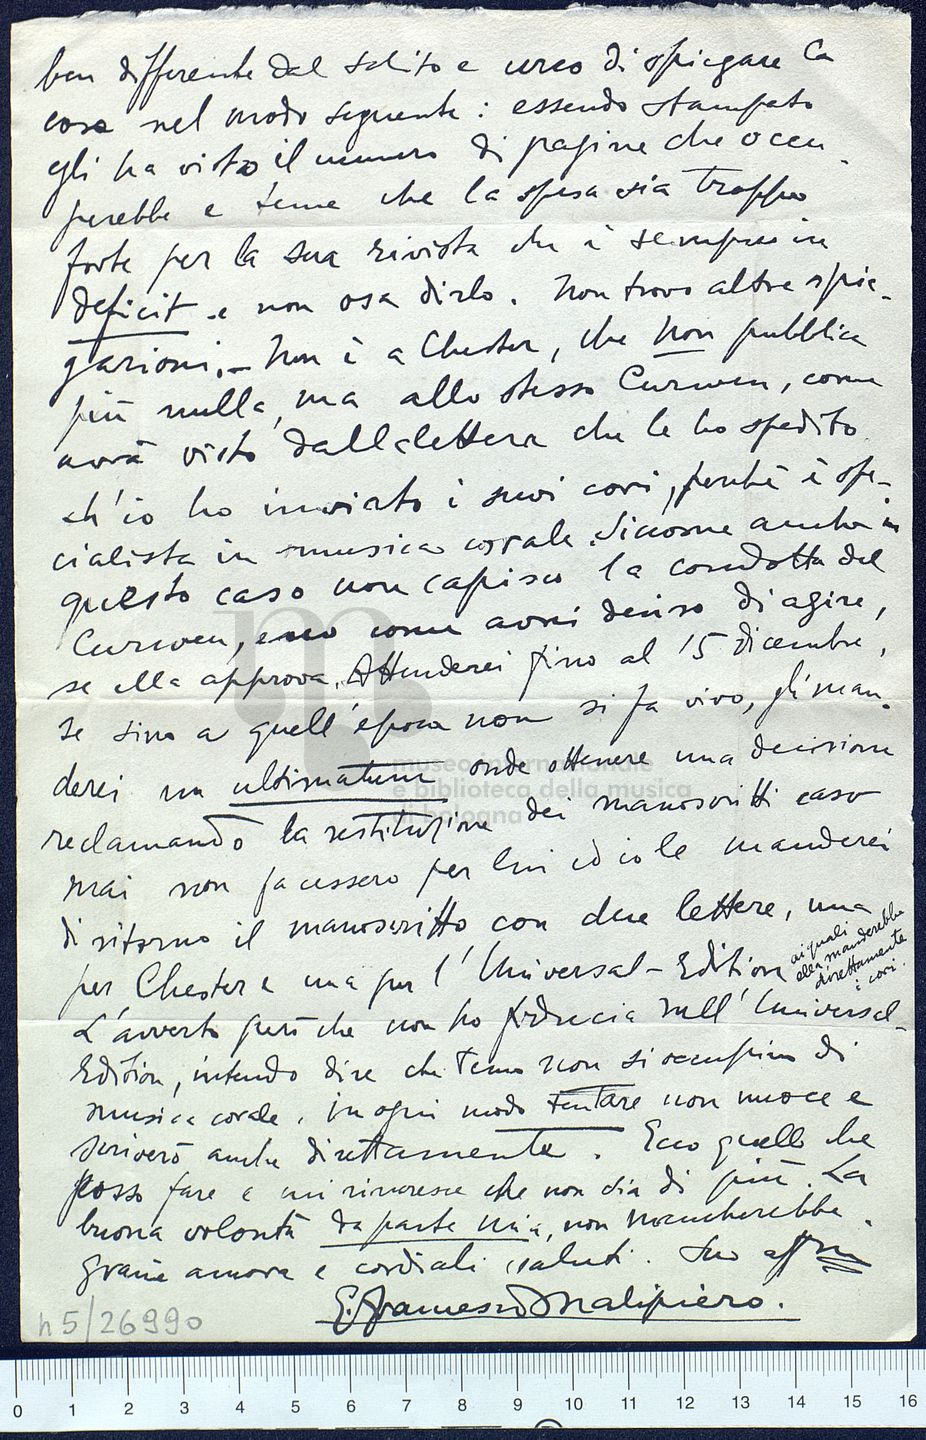 ben differente dal solito e cerco di spiegare la
cosa nel modo seguente: essendo stampato
egli ha visto il numero di pagine che occu-
perebbe e teme che la spesa sia troppo
forte per la sua rivista che è sempre in
deficit e non osa dirlo. Non trovo altre spie-
gazioni. – Non è a Chester, che non pubblica
più nulla, ma allo stesso Curwen, come
avrà visto dalla lettera che le ho spedito
ch'io ho inviato i suoi cori, perchè è spe-
cialista in musica corale. Siccome anche in
questo caso non capisco la condotta del
Curwen, ecco come avrei deciso di agire,
se ella approva. Attenderei fino al 15 dicembre,
se sino a quell'epoca non si fa vivo, gli man-
derei un ultimatum onde ottenere una decisione
reclamando la restituzione dei manoscritti caso
mai non facessero per lui ed io le manderei
di ritorno il manoscritto con due lettere, una
per Chester e una per l'Universal-Edition ai quali
ella manderebbe
direttamente
i cori.
L'avverto però che non ho fiducia nell'Universal-
Edition, intendo dire che temo non si occupino di
musica corale. In ogni modo tentare non nuoce e
scriverò anche direttamente. Ecco quello che
posso fare e mi rincresce che non sia di più. La
buona volontà da parte mia, non mancherebbe.
Grazie ancora e cordiali saluti. Suo affmo
G. Francesco Malipiero.
h5/26990
museo internazionale
e biblioteca della musica
di bologna
0 1 2 3 4 5 6 7 8 9 10 11 12 13 14 15 16